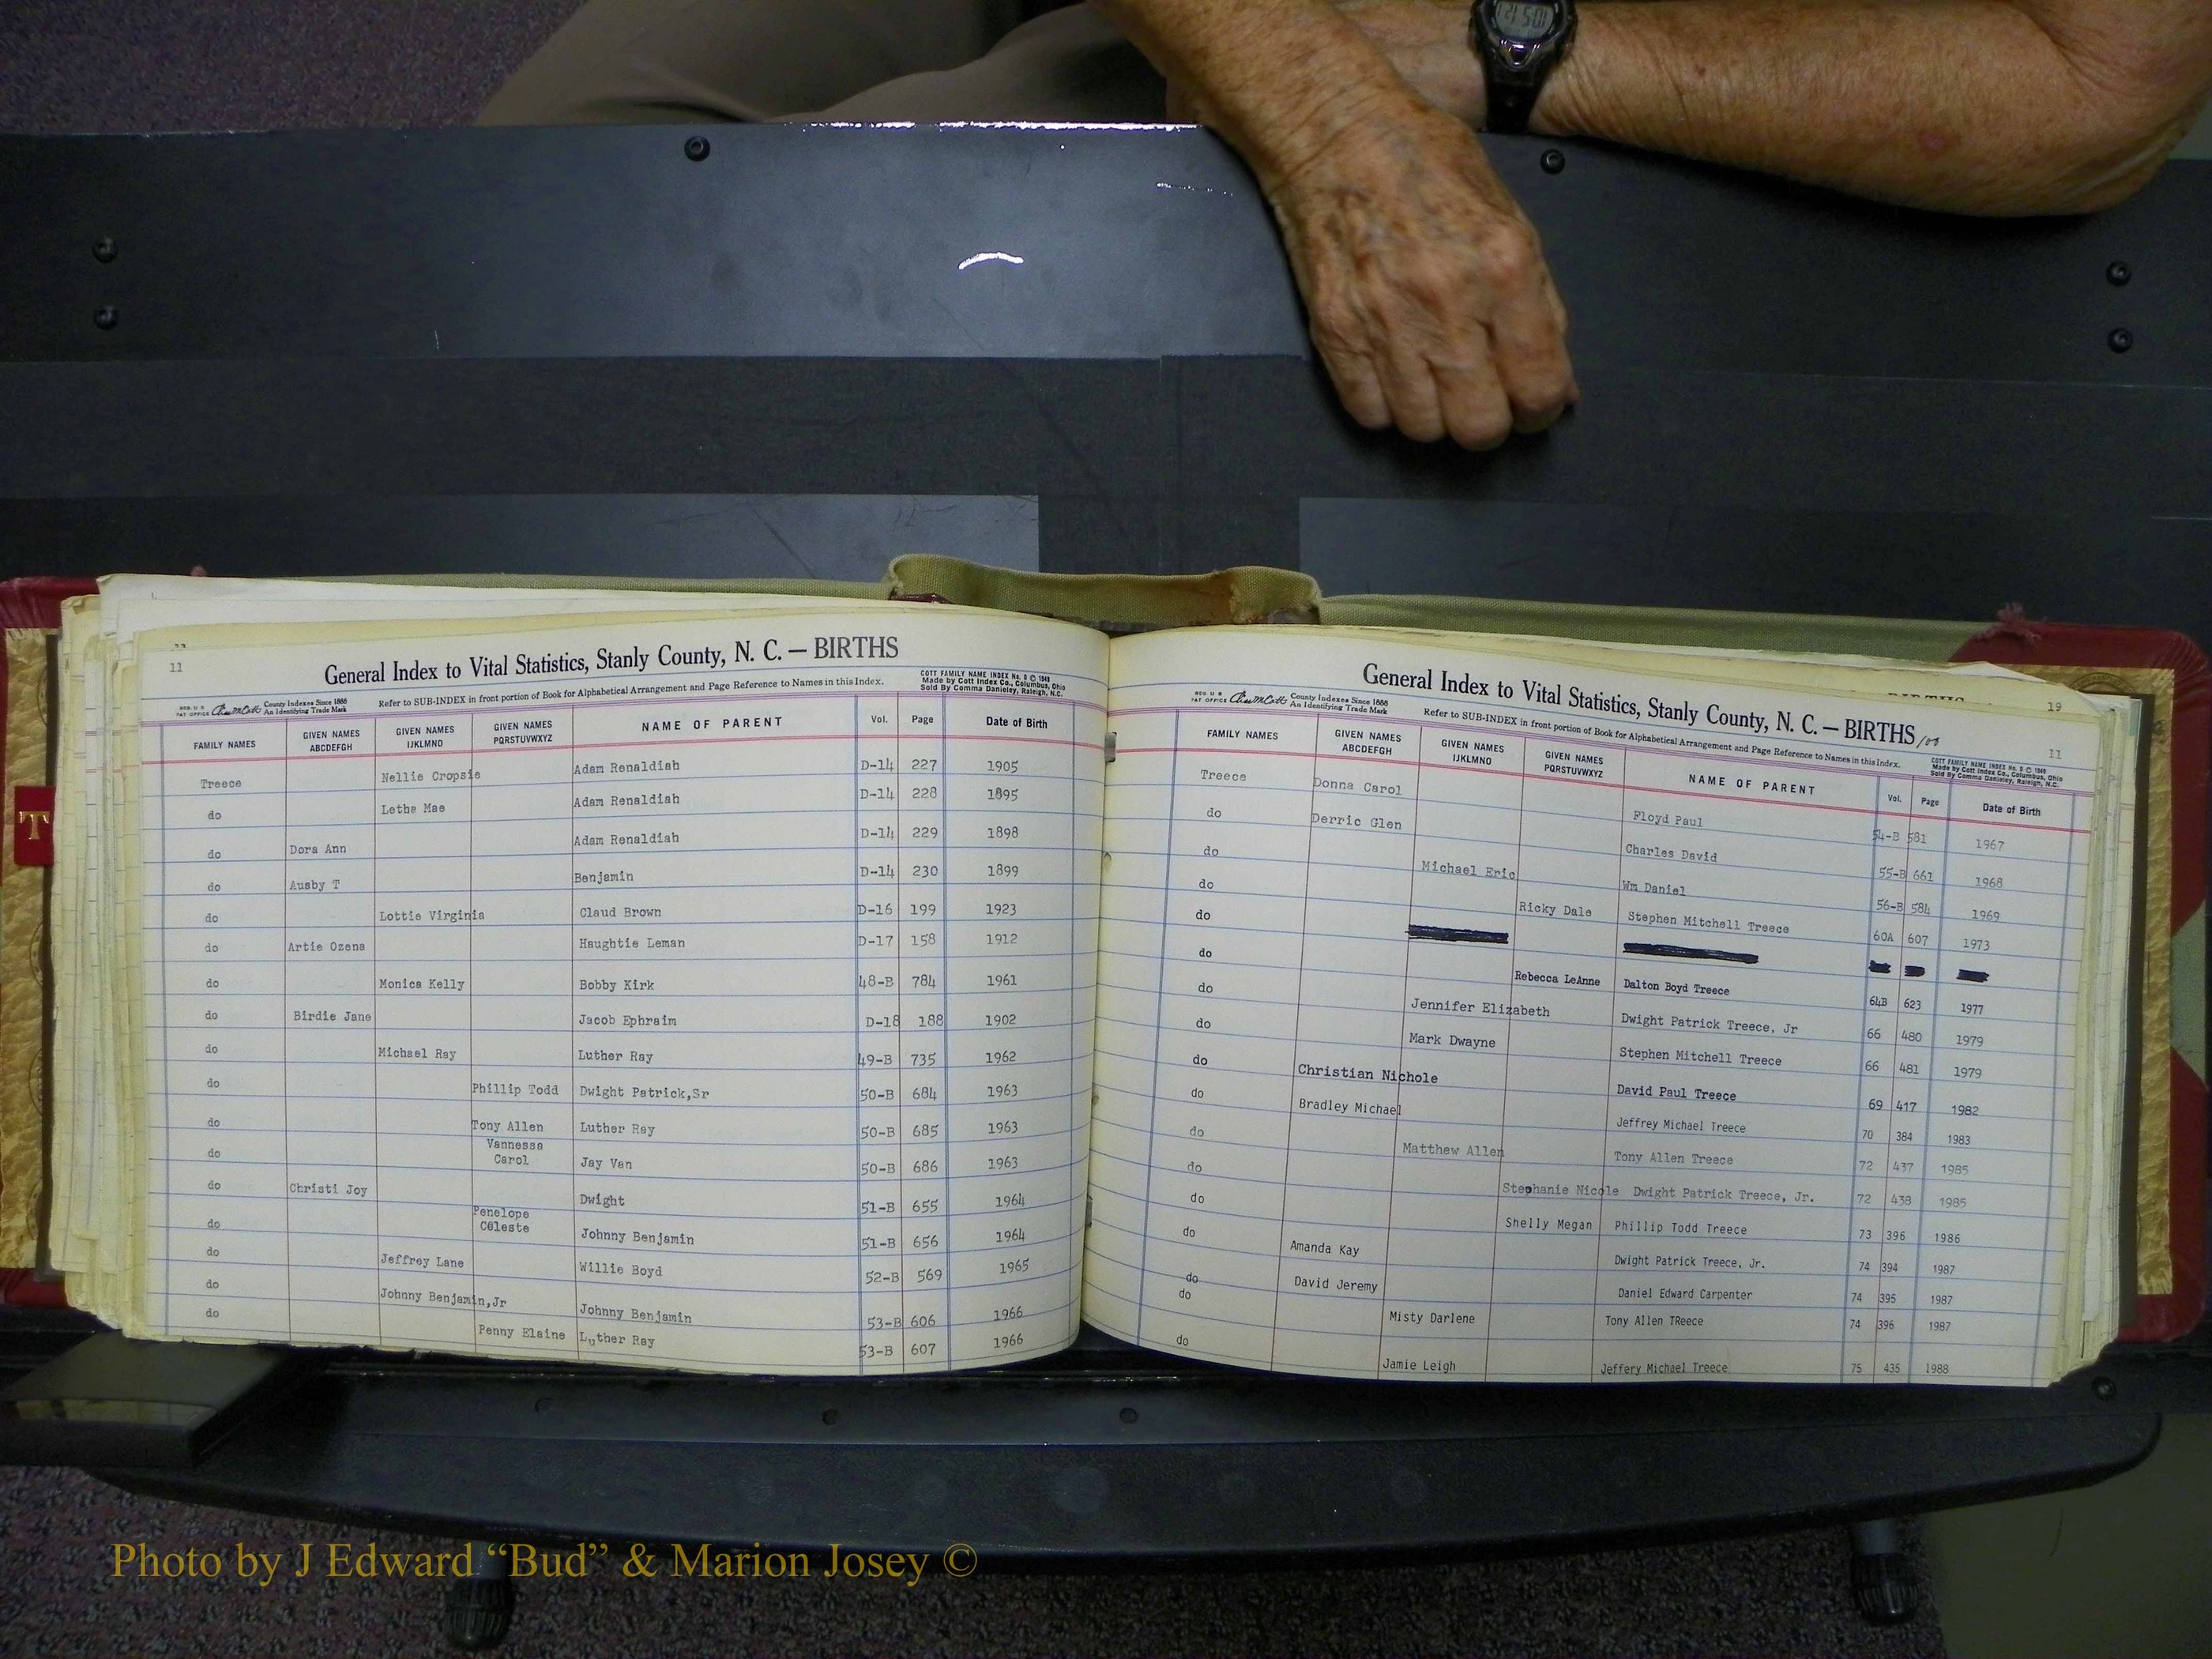 21 501
11
General Index to Vital Statistics, Stanly County, N. C. — BIRTHS
REG. U S PAT OFFICE County Indexes Since 1888 An Identifying Trade Mark
Refer to SUB-INDEX in front portion of Book for Alphabetical Arrangement and Page Reference to Names in this Index.
COTT FAMILY NAME INDEX No. 9 © 1949
Made by Cott Index Co., Columbus, Ohio
Sold By Comma Danieley, Raleigh, N.C.
FAMILY NAMES GIVEN NAMES ABCDEFGH GIVEN NAMES IJKLMNO GIVEN NAMES PQRSTUVWXYZ NAME OF PARENT Vol. Page Date of Birth
Treece Nellie Cropsie Adam Renaldiah D-14 227 1905
do Letha Mae Adam Renaldiah D-14 228 1895
do Dora Ann Adam Renaldiah D-14 229 1898
do Ausby T Benjamin D-14 230 1899
do Lottie Virginia Claud Brown D-16 199 1923
do Artie Ozena Haughtie Leman D-17 158 1912
do Monica Kelly Bobby Kirk 48-B 784 1961
do Birdie Jane Jacob Ephraim D-18 188 1902
do Michael Ray Luther Ray 49-B 735 1962
do Phillip Todd Dwight Patrick,Sr 50-B 684 1963
do Tony Allen Luther Ray 50-B 685 1963
do Vannessa Carol Jay Van 50-B 686 1963
do Christi Joy Dwight 51-B 655 1964
do Penelope Celeste Johnny Benjamin 51-B 656 1964
do Jeffrey Lane Willie Boyd 52-B 569 1965
do Johnny Benjamin,Jr Johnny Benjamin 53-B 606 1966
do Penny Elaine Luther Ray 53-B 607 1966
T
19
General Index to Vital Statistics, Stanly County, N. C. — BIRTHS/100
11
REG. U S PAT OFFICE County Indexes Since 1888 An Identifying Trade Mark
Refer to SUB-INDEX in front portion of Book for Alphabetical Arrangement and Page Reference to Names in this Index.
COTT FAMILY NAME INDEX No. 9 © 1949
Made by Cott Index Co., Columbus, Ohio
Sold By Comma Danieley, Raleigh, N.C.
FAMILY NAMES GIVEN NAMES ABCDEFGH GIVEN NAMES IJKLMNO GIVEN NAMES PQRSTUVWXYZ NAME OF PARENT Vol. Page Date of Birth
Treece Donna Carol Floyd Paul 54-B 581 1967
do Derric Glen Charles David 55-B 661 1968
do Michael Eric Wm Daniel 56-B 584 1969
do Ricky Dale Stephen Mitchell Treece 60A 607 1973
do
do Rebecca LeAnne Dalton Boyd Treece 64B 623 1977
do Jennifer Elizabeth Dwight Patrick Treece, Jr 66 480 1979
do Mark Dwayne Stephen Mitchell Treece 66 481 1979
do Christian Nichole David Paul Treece 69 417 1982
do Bradley Michael Jeffrey Michael Treece 70 384 1983
do Matthew Allen Tony Allen Treece 72 437 1985
do Stephanie Nicole Dwight Patrick Treece, Jr. 72 438 1985
do Shelly Megan Phillip Todd Treece 73 396 1986
do Amanda Kay Dwight Patrick Treece, Jr. 74 394 1987
do David Jeremy Daniel Edward Carpenter 74 395 1987
do Misty Darlene Tony Allen TReece 74 396 1987
do Jamie Leigh Jeffery Michael Treece 75 435 1988
Photo by J Edward “Bud” & Marion Josey ©